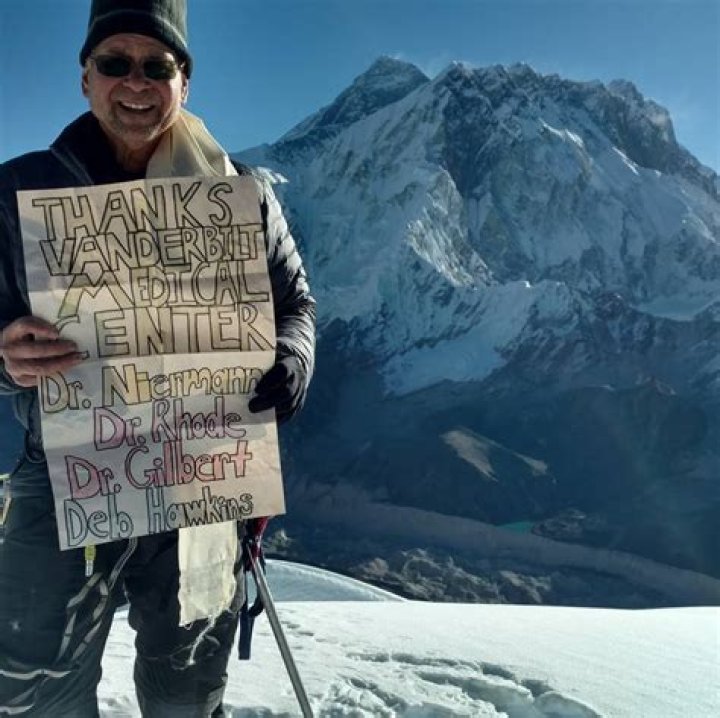 THANKS
VANDERBILT
MEDICAL
CENTER
Dr. Niermann
Dr. Rhode
Dr. Gilbert
Deb Hawkins